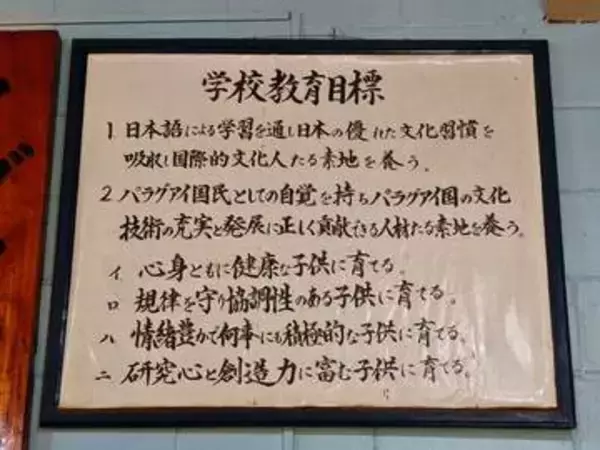 学校教育目標
1. 日本語による学習を通し日本の優れた文化習慣を
吸収し国際的文化人たる素地を養う。
2. パラグアイ国民としての自覚を持ちパラグアイ国の文化
技術の充実と発展に正しく貢献できる人材たる素地を養う。
イ 心身ともに健康な子供に育てる。
ロ 規律を守り協調性のある子供に育てる。
ハ 情緒豊かで何事にも積極的な子供に育てる。
ニ 研究心と創造力に富む子供に育てる。